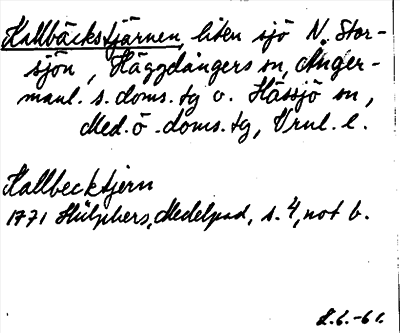 Kallbäckstjärnen, liten sjö N. Stor-
sjön, Häggdångers sn, Ånger-
manl. s. doms. tg o. Hässjö sn,
Med. ö. doms. tg, Vrnl. l.
Kallbecktjern
1771 Hülphers, Medelpad, s. 4, not b.
L.L.-61.